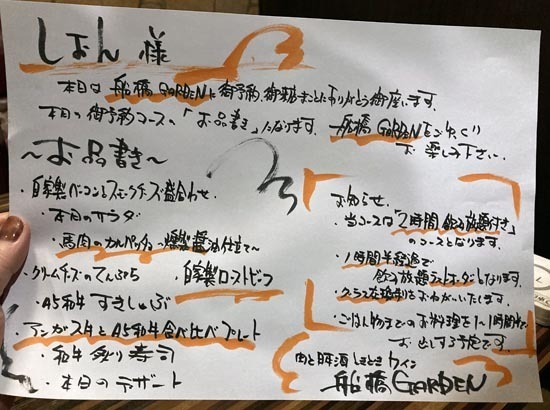 しおん 様
本日は 船橋GARDENに御予約、御来店まことにありがとう御座います。
本日の御予約コースの「お品書き」になります。船橋GARDENをごゆっくり
お楽しみ下さい。
〜お品書き〜
・自家製ベーコンとスモークチーズ盛合わせ
・本日のサラダ
・馬肉のカルパッチョ〜燻製醤油仕立て〜
・クリームチーズのてんぷら
・自家製ローストビーフ
・A5和牛 すきしゃぶ
・アンガス牛とA5和牛食べ比べプレート
・和牛炙り寿司
・本日のデザート
お知らせ
・当コースは「2時間飲み放題付き」
のコースとなります。
・1時間半経過で
飲み放題ラストオーダーとなります。
・グラス交換制をおねがいいたします。
・ごはん物までのお料理を1〜1時間半で
お出しする予定です。
肉と日本酒 ときどき ワイン
船橋GARDEN